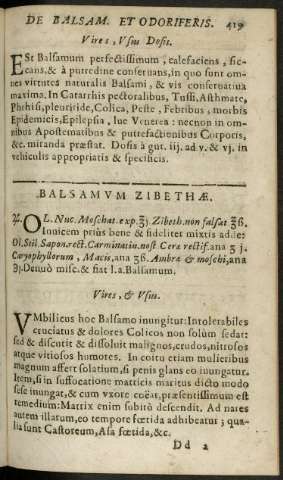 DE BALSAM. ET ODORIFERIS. 419
Vires, Vsus Dosis.
ESt Balsamum perfectissimum, calefaciens, sic-
cans, & à putredine conseruans, in quo sunt om-
nes virtutes naturalis Balsami, & vis conseruatiua
maxima. In Catarrhis pectoralibus, Tussi, Asthmate,
Phthisi, pleuritide, Colica, Peste, Febribus, morbis
Epidemicis, Epilepsia, lue Venerea: necnon in om-
nibus Apostematibus & putrefactionibus Corporis,
&c. miranda præstat. Dosis à gut. iij. ad v. & vj. in
vehiculis appropriatis & specificis.
BALSAMVM ZIBETHÆ.
♃. OL. Nuc. Moschat. exp. ʒj. Zibeth. non falsat ʒß.
Inuicem priùs bene & fideliter mixtis adde:
Ol. Stil. Sapon. rect. Carminatiu. nost. Ceræ rectif. ana ʒ j.
Caryophyllorum, Macis, ana ʒß. Ambræ & moschi, ana
Ʒj. Denuò misc. & fiat l.a. Balsamum.
Vires, & Vsus.
VMbilicus hoc Balsamo inungitur: Intolerabiles
cruciatus & dolores Colicos non solùm sedat:
sed & discutit & dissoluit malignos, crudos, nitrosos
atque vitiosos humores. In coitu etiam mulieribus
magnum affert solatium, si penis glans eo inungatur.
Item, si in suffocatione matricis maritus dicto modo
sese inungat, & cum vxore coëat, præsentissimum est
remedium: Matrix enim subitò descendit. Ad nares
autem illarum, eo tempore fœtida adhibeatur; qua-
lia sunt Castoreum, Asa fœtida, &c.
Dd 2